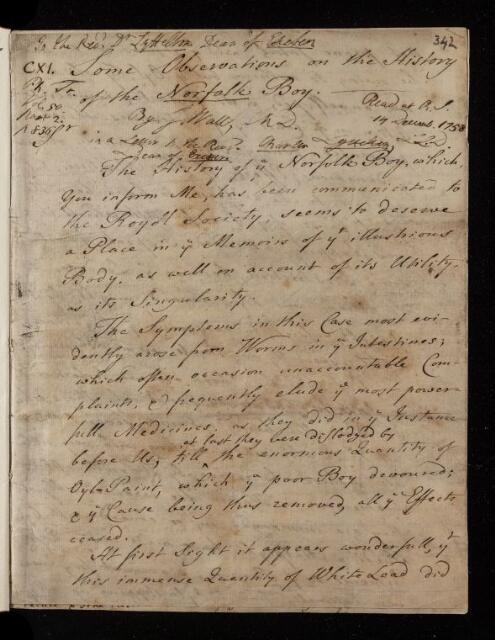 To the Revd. Dr. Lyttelton Dean of Exeter
342
CXI. Some Observations on the History
of the Norfolk Boy.
By J Wall, M.D.
Read at R.S.
14 Decemr. 1758
in a Letter to the Revd. Charles Lyttelton,
Dean of Exeter
The History of ye Norfolk Boy, which,
You inform Me, has been communicated to
the Royal Society, seems to deserve
a Place in ye Memoirs of yt illustrious
Body, as well on account of its Utility,
as its Singularity.
The Symptoms in this Case most evi-
dently arose from Worms in ye Intestines;
which often occasion unaccountable Com-
plaints, & frequently elude ye most power-
full Medicines; as they did in ye Instance
before Us, till the enormous Quantity of
at last they were dislodged by
Oyl-Paint, which ye poor Boy devoured;
& ye Cause being thus removed, all ye Effects
ceased.
At first Sight it appears wonderfull, yt
this immense Quantity of White Lead did